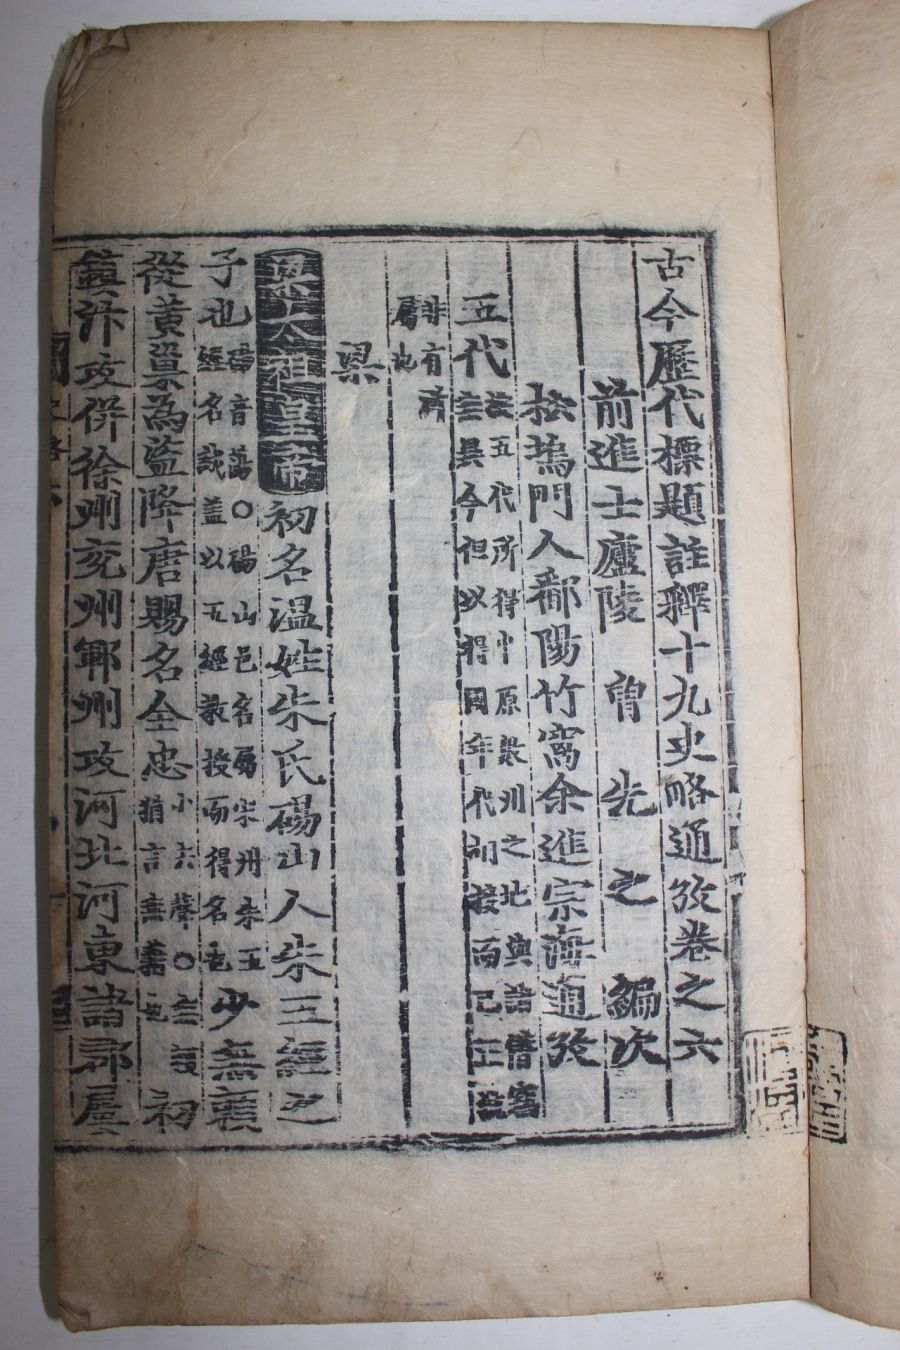 古今歷代標題註釋十九史略通攷卷之六
前進士廬陵 曾 先 之 編次
按塢門人鄱陽竹窩余進宗海通攷
五代 五代所得中原數州之地與諸僭
異今但以得國年代列授而已正
非有所
屬也
梁
太祖皇帝 初名溫姓朱氏碭山人朱五經之
子也 碭音蕩○碭山邑名屬宋州朱五
經名誠盖以五經敎授而得名也 少無賴
從黃巢為盜降唐賜名全忠 初
鎮汴攻併徐州兗州鄆州攻河北河東諸郡屢